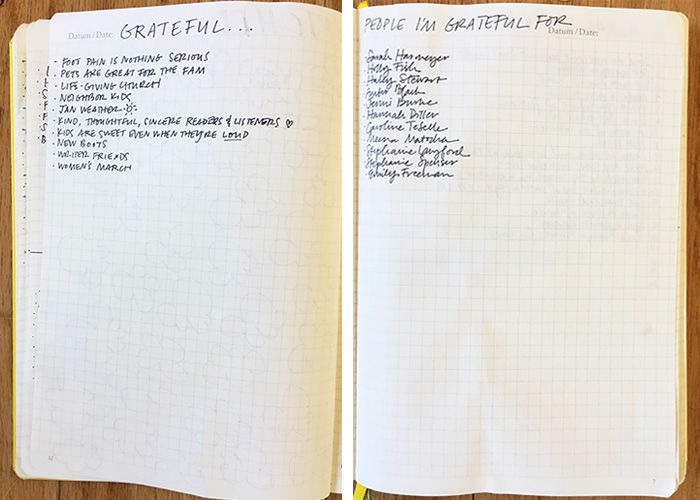 Datum / Date: GRATEFUL...
· FOOT PAIN IS NOTHING SERIOUS
· PETS ARE GREAT FOR THE FAM
· LIFE-GIVING CHURCH
· NEIGHBOR KIDS
· JAN WEATHER
· KIND, THOUGHTFUL, SINCERE READERS & LISTENERS ♡
· KIDS ARE SWEET EVEN WHEN THEY'RE LOUD
· NEW BOOTS
· WRITER FRIENDS
· WOMEN'S MARCH
32
PEOPLE I'M GRATEFUL FOR
Datum / Date:
· Sarah
· Holly Fish
· Hailey Stewart
· Burke
· Hannah Diller
· Caroline TeSelle
· Matocha
· Stephanie
· Stephanie Spencer
· Emily Freeman
7